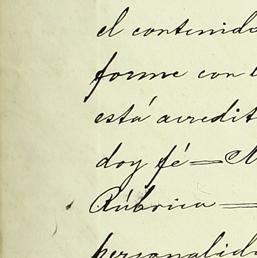 el contenido
forme con l
está acredit
doy fé — 
Rúbrica —
personalida